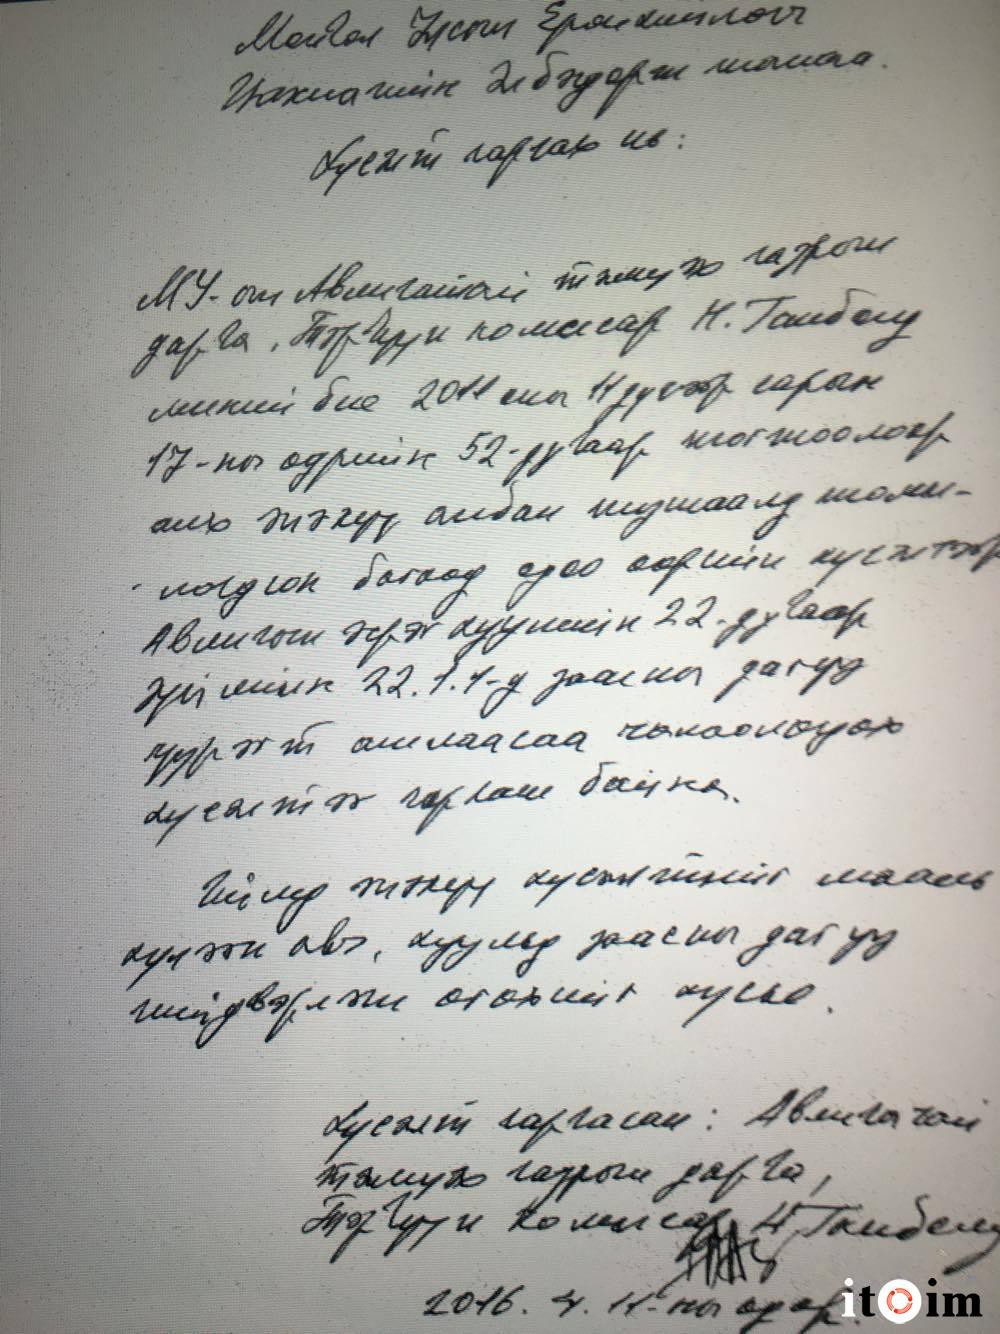 Монгол Улсын Ерөнхийлөгч
Цахиагийн Элбэгдорж танаа.
Хүсэлт гаргах нь:
МУ-ын Авлигатай тэмцэх газрын
дарга, Тэргүүн комиссар Н.Ганболд
миний бие 2011 оны 11 дүгээр сарын
17-ны өдрийн 52-дугаар тогтоолоор
энэхүү албан тушаалд томи-
логдсон бөгөөд өөрийн хүсэлтээр
Авлигын эсрэг хуулийн 22-дугаар
зүйлийн 22.1.1-д заасны дагуу
үүрэгт ажлаасаа чөлөөлөгдөх
хүсэлтээ гаргаж байна.
Иймд энэхүү хүсэлтийг маань
хүлээн авч, хуульд заасны дагуу
шийдвэрлэж өгөхийг хүсье.
Хүсэлт гаргасан: Авлигатай
тэмцэх газрын дарга,
Тэргүүн комиссар Н.Ганболд
2016. 4. 11-ны өдөр.
itoim